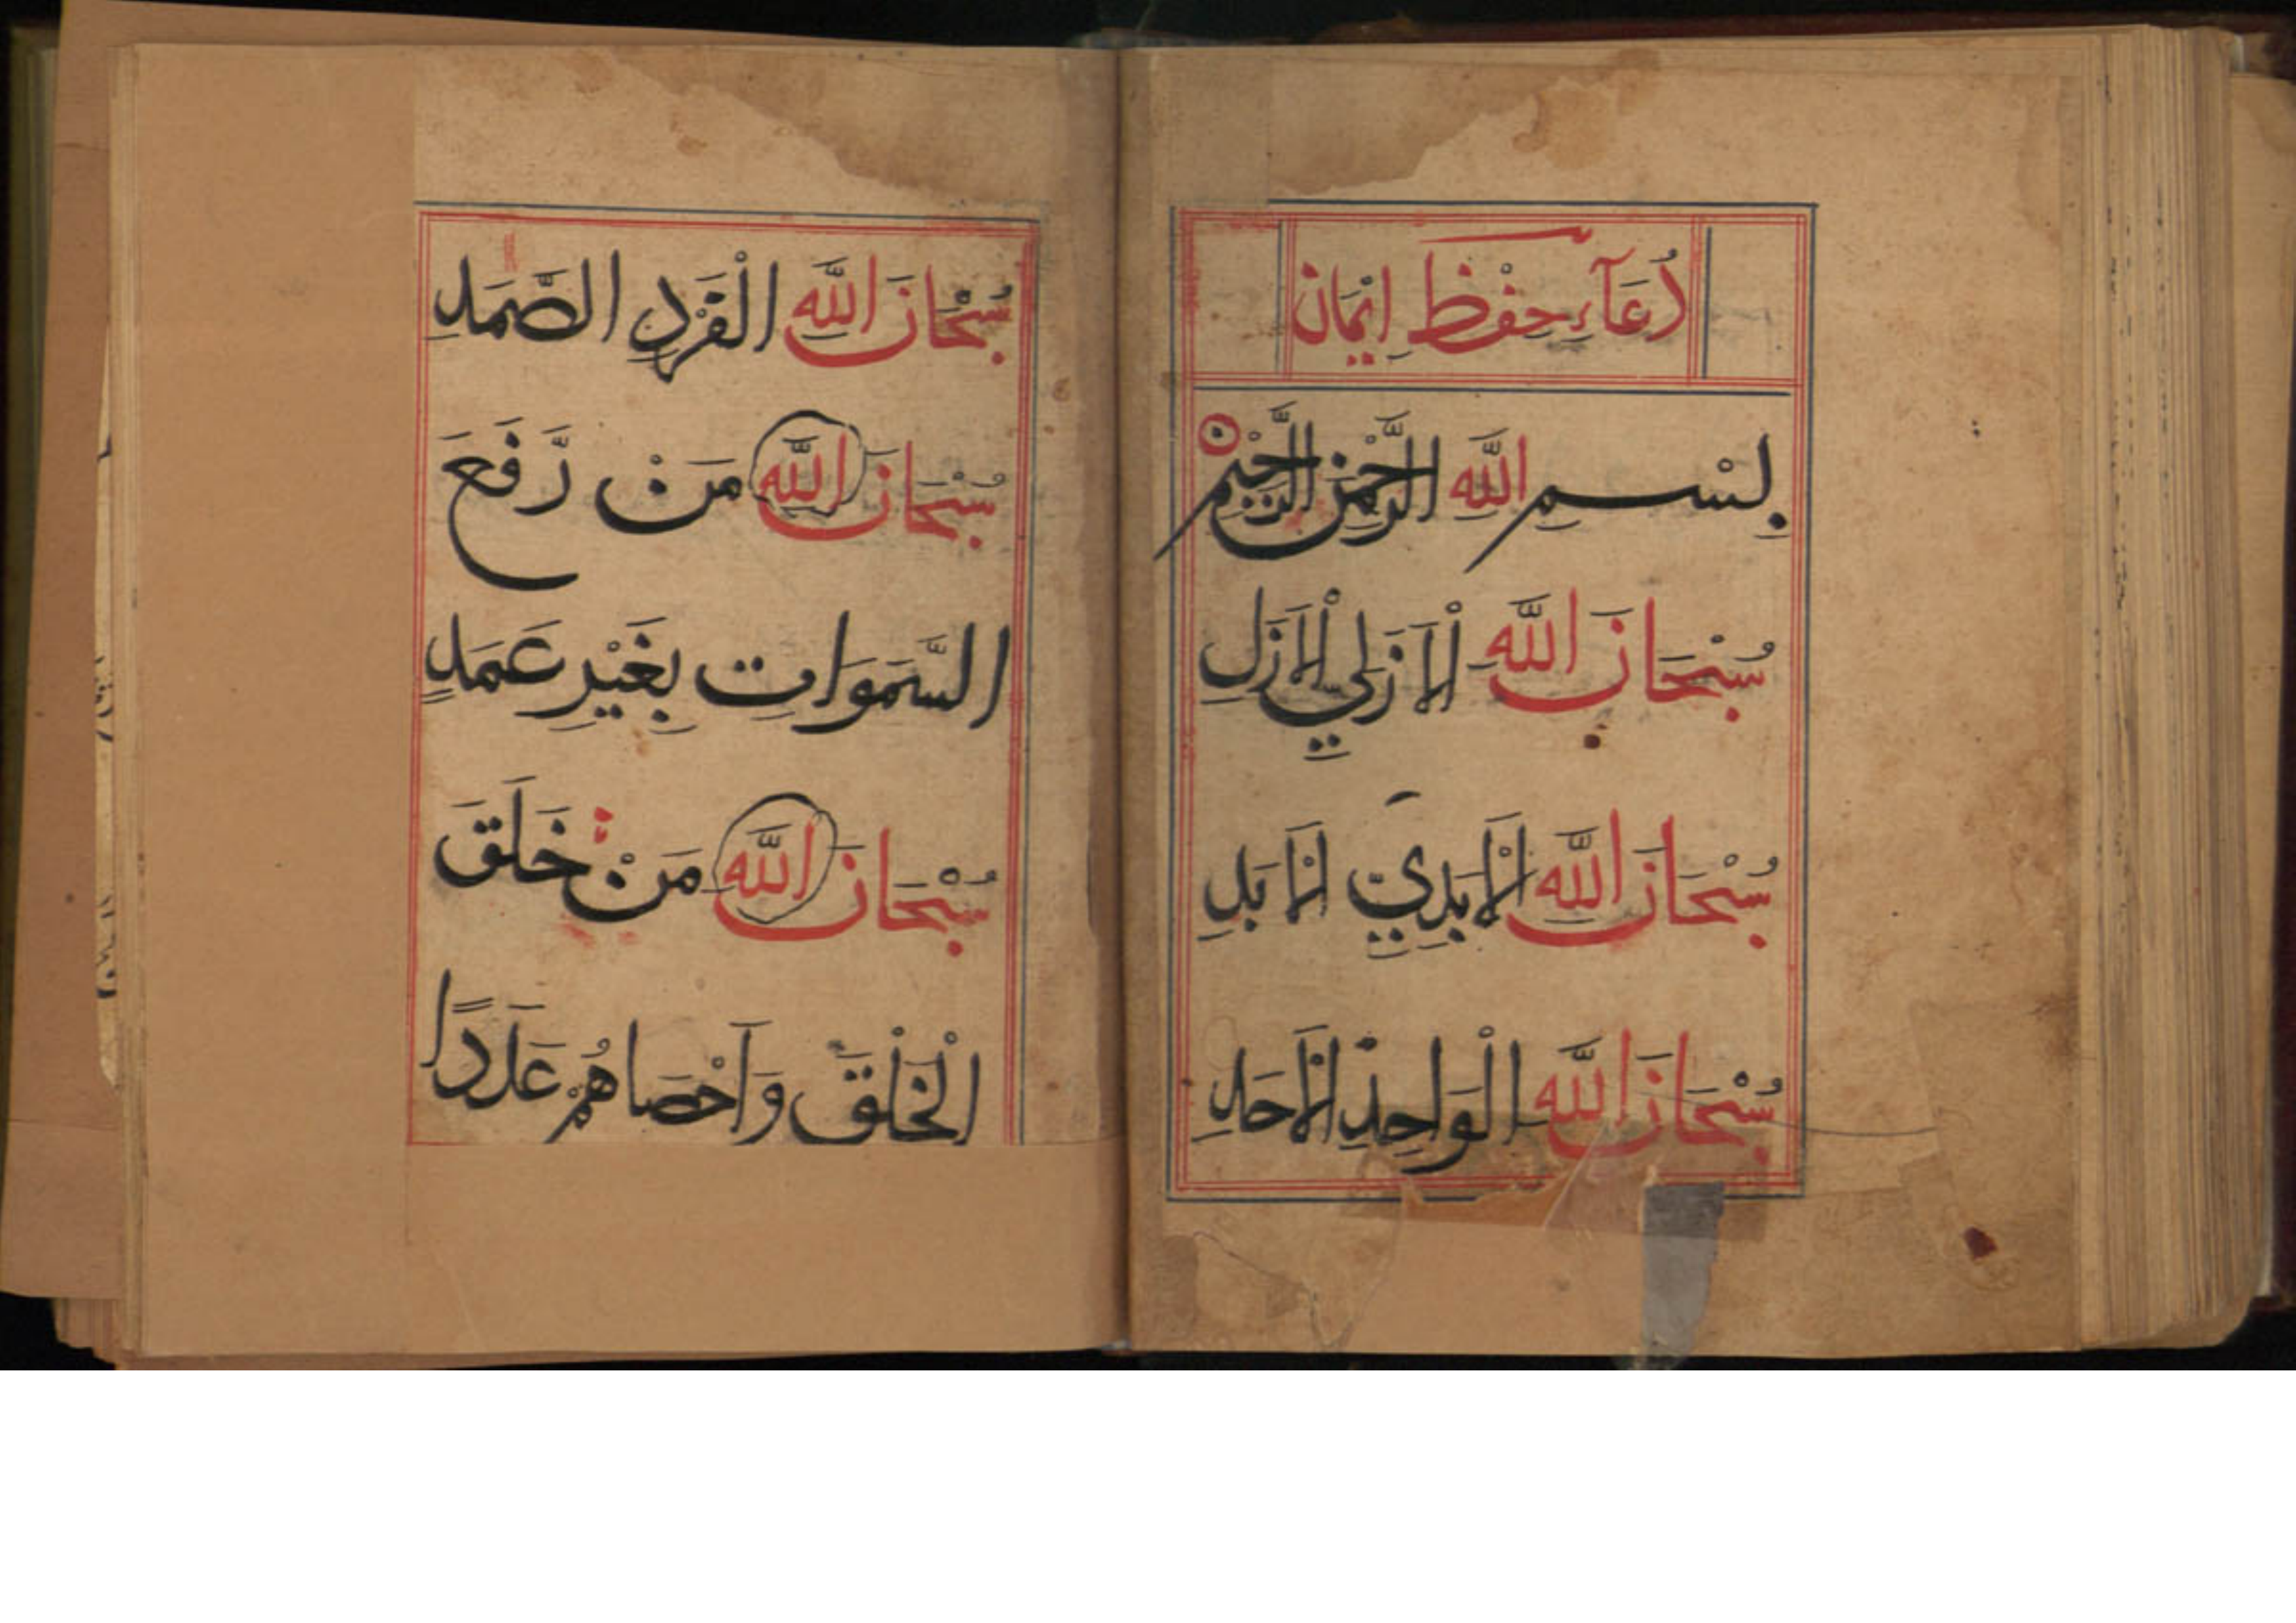 دُعَآءِ حِفْظِ اِيْمَانْ
بِسْمِ اللَّهِ الرَّحْمٰنِ الرَّحِيْمِ
سُبْحَانَ اللَّهِ الْاَزَلِيِ الْاَزَلِ
سُبْحَانَ اللَّهِ الْاَبَدِيِّ الْاَبَدِ
سُبْحَانَ اللَّهِ الْوَاحِدِ الْاَحَدِ
سُبْحَانَ اللَّهِ الْفَرْدِ الصَّمَدِ
سُبْحَانَ اللَّهِ مَنْ رَّفَعَ
السَّمَوَاتِ بِغَيْرِ عَمَدٍ
سُبْحَانَ اللَّهِ مَنْ خَلَقَ
الْخَلْقَ وَاَحْصَاهُمْ عَدَدًا